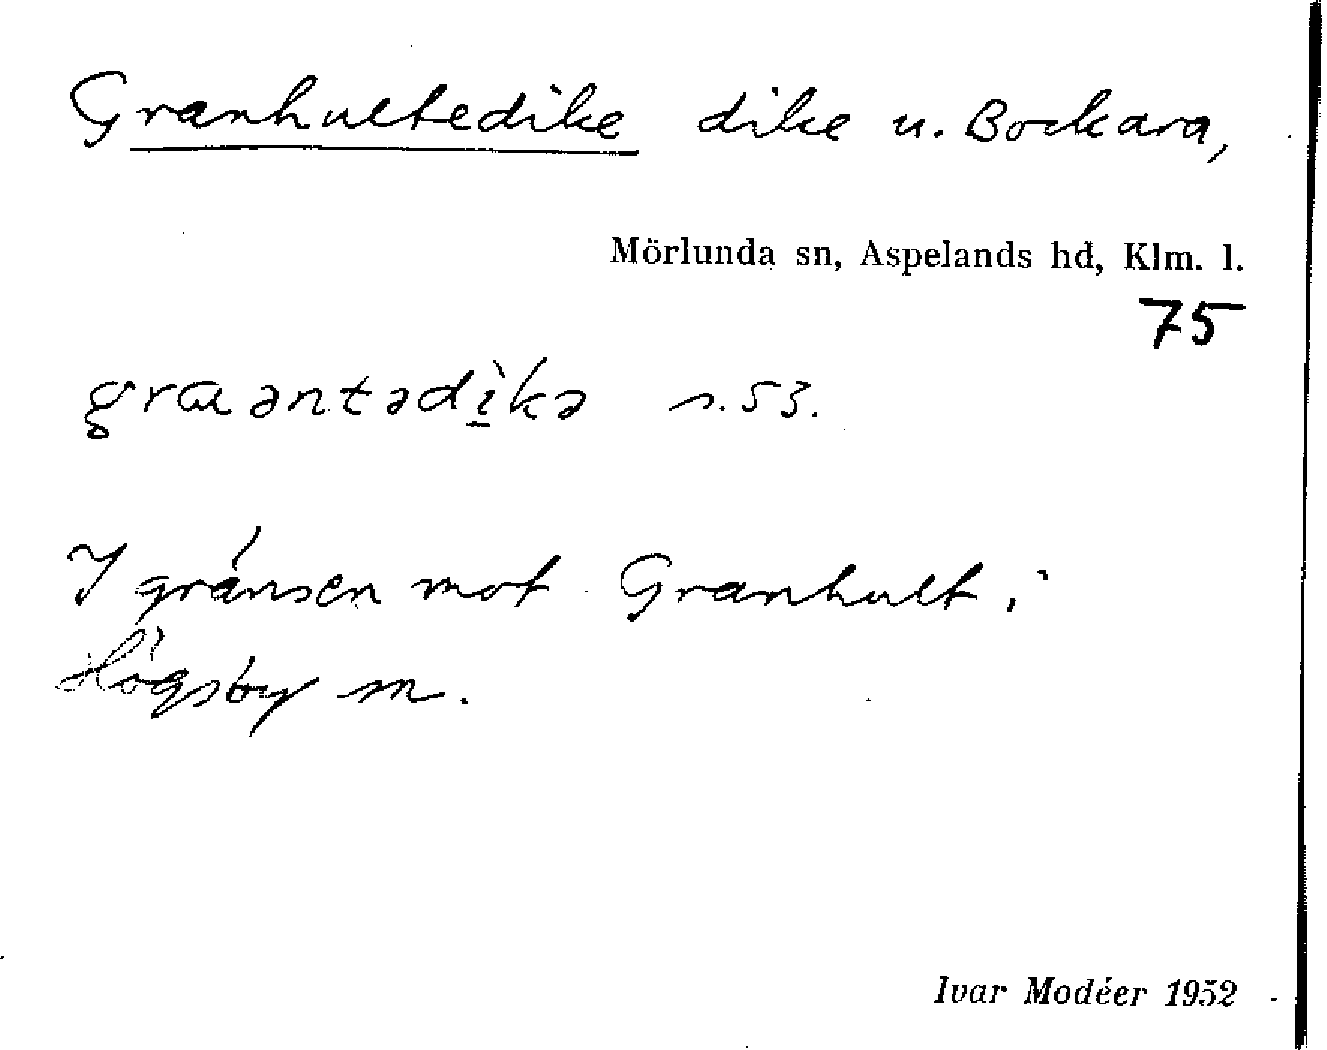 Granhultedike dike u. Bockara,
Mörlunda sn, Aspelands hd, Klm. l.
75
graəntədìkə s. 53.
I gränsen mot Granhult i
Högsby sn.
Ivar Modéer 1952